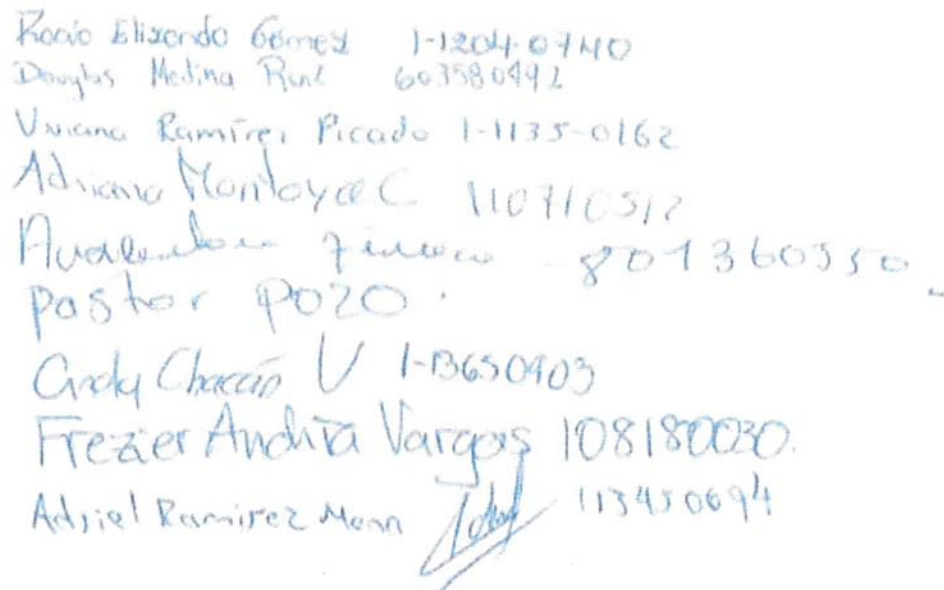 Rocio Elizondo Gómez 1-1204-0740
Douglas Medina Ruiz 603580492
Viviana Ramírez Picado 1-1135-0162
Adriana Montoya C 110710512
801360550
pastor pozo.
Andy Chacón V 1-13650903
Frezier Andita Vargas 108180030.
Adriel Ramirez Menn 113450694